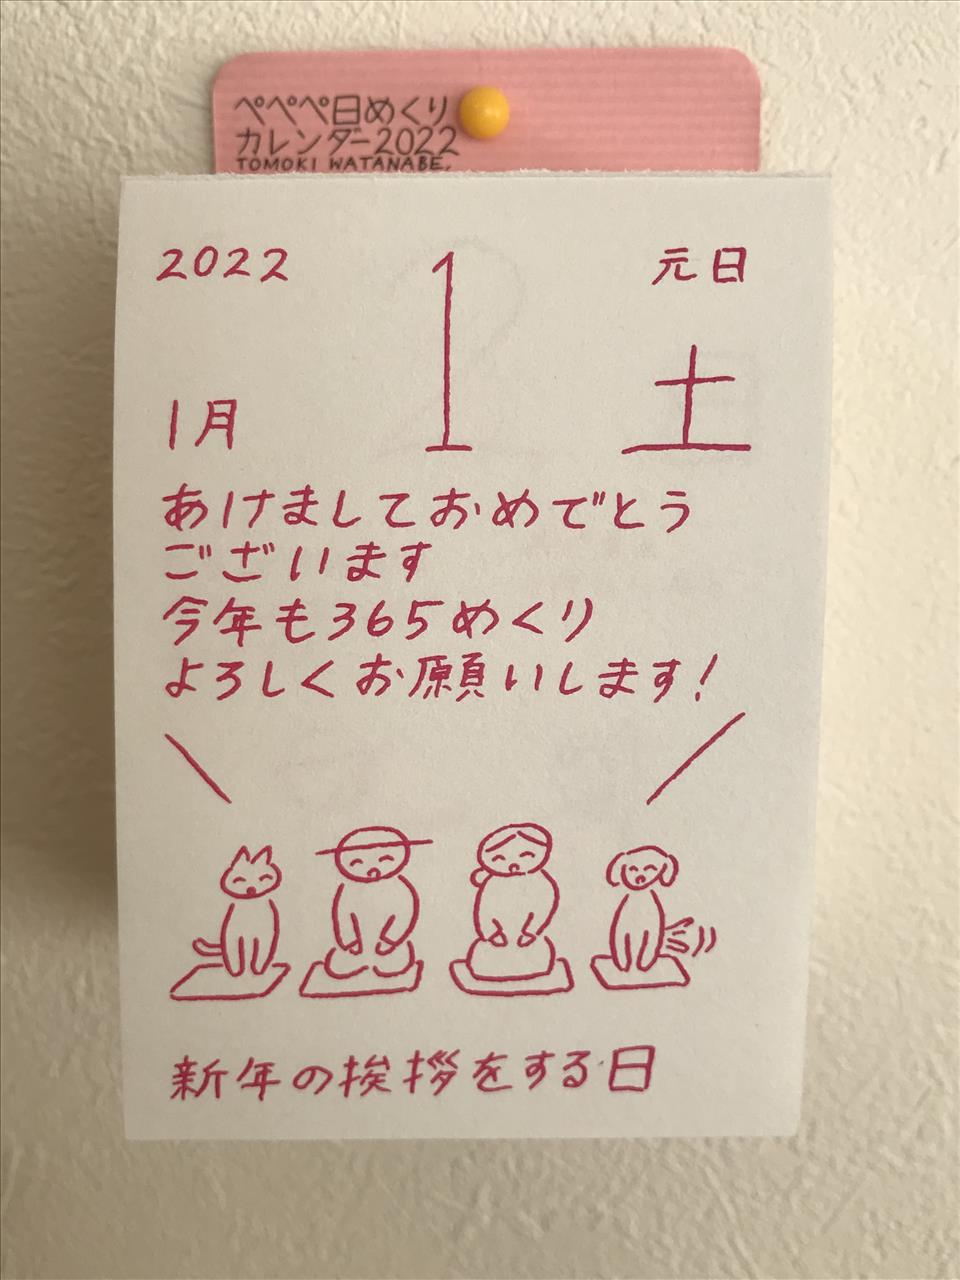 ぺぺぺ日めくり
カレンダー2022
TOMOKI WATANABE,
2022
1
元日
1月
土
あけましておめでとう
ございます
今年も365めくり
よろしくお願いします!
新年の挨拶をする日